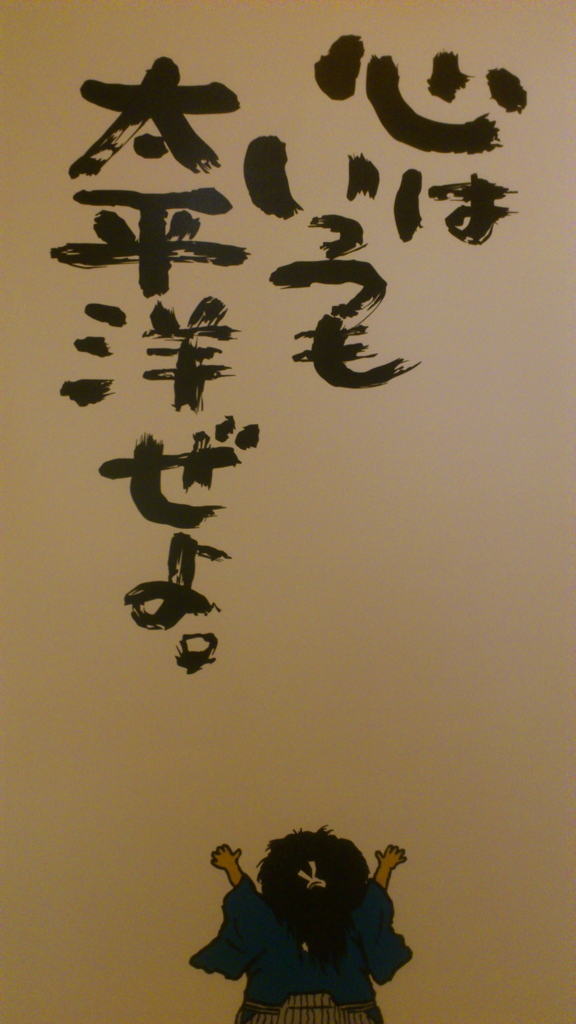 心は
いつも
太平洋ぜよ。